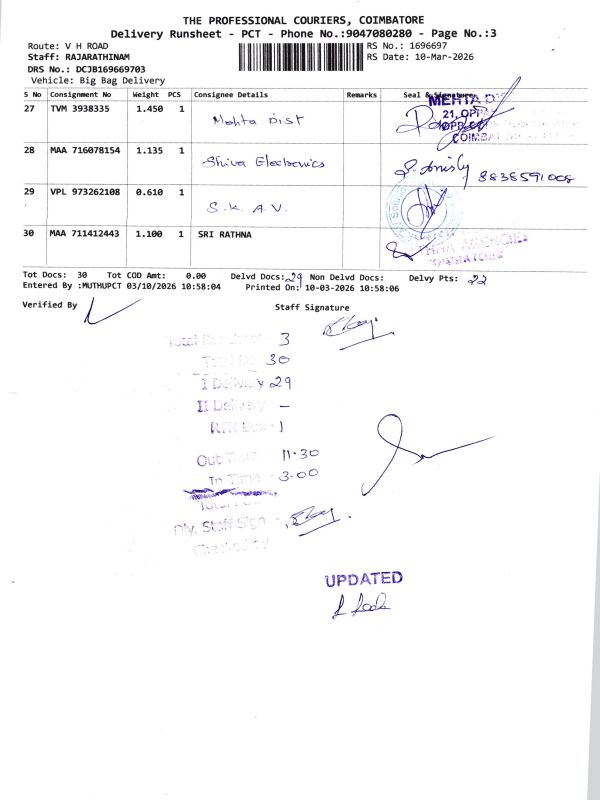 THE PROFESSIONAL COURIERS, COIMBATORE
Delivery Runsheet - PCT - Phone No.:9047080280 - Page No.:3
Route: V H ROAD RS No.: 1696697
Staff: RAJARATHINAM RS Date: 10-Mar-2026
DRS No.: DCJB169669703
Vehicle: Big Bag Delivery
S No Consignment No Weight PCS Consignee Details Remarks Seal & Signature
27 TVM 3938335 1.450 1 Mehta Dist MEHTA D
21, OPP
COIMBA
28 MAA 716078154 1.135 1 Shiva Electronics 8838591008
29 VPL 973262108 0.610 1 S.K.A.V.
30 MAA 711412443 1.100 1 SRI RATHNA AGENCIES
COIMBATORE
Tot Docs: 30 Tot COD Amt: 0.00 Delvd Docs: 29 Non Delvd Docs: Delvy Pts: 22
Entered By :MUTHUPCT 03/10/2026 10:58:04 Printed On: 10-03-2026 10:58:06
Verified By Staff Signature
Total 3
Total 30
I Delivery 29
II Delivery -
1
Out Time 11-30
In Time 3-00
Dly. Staff Sign
Checked by
UPDATED